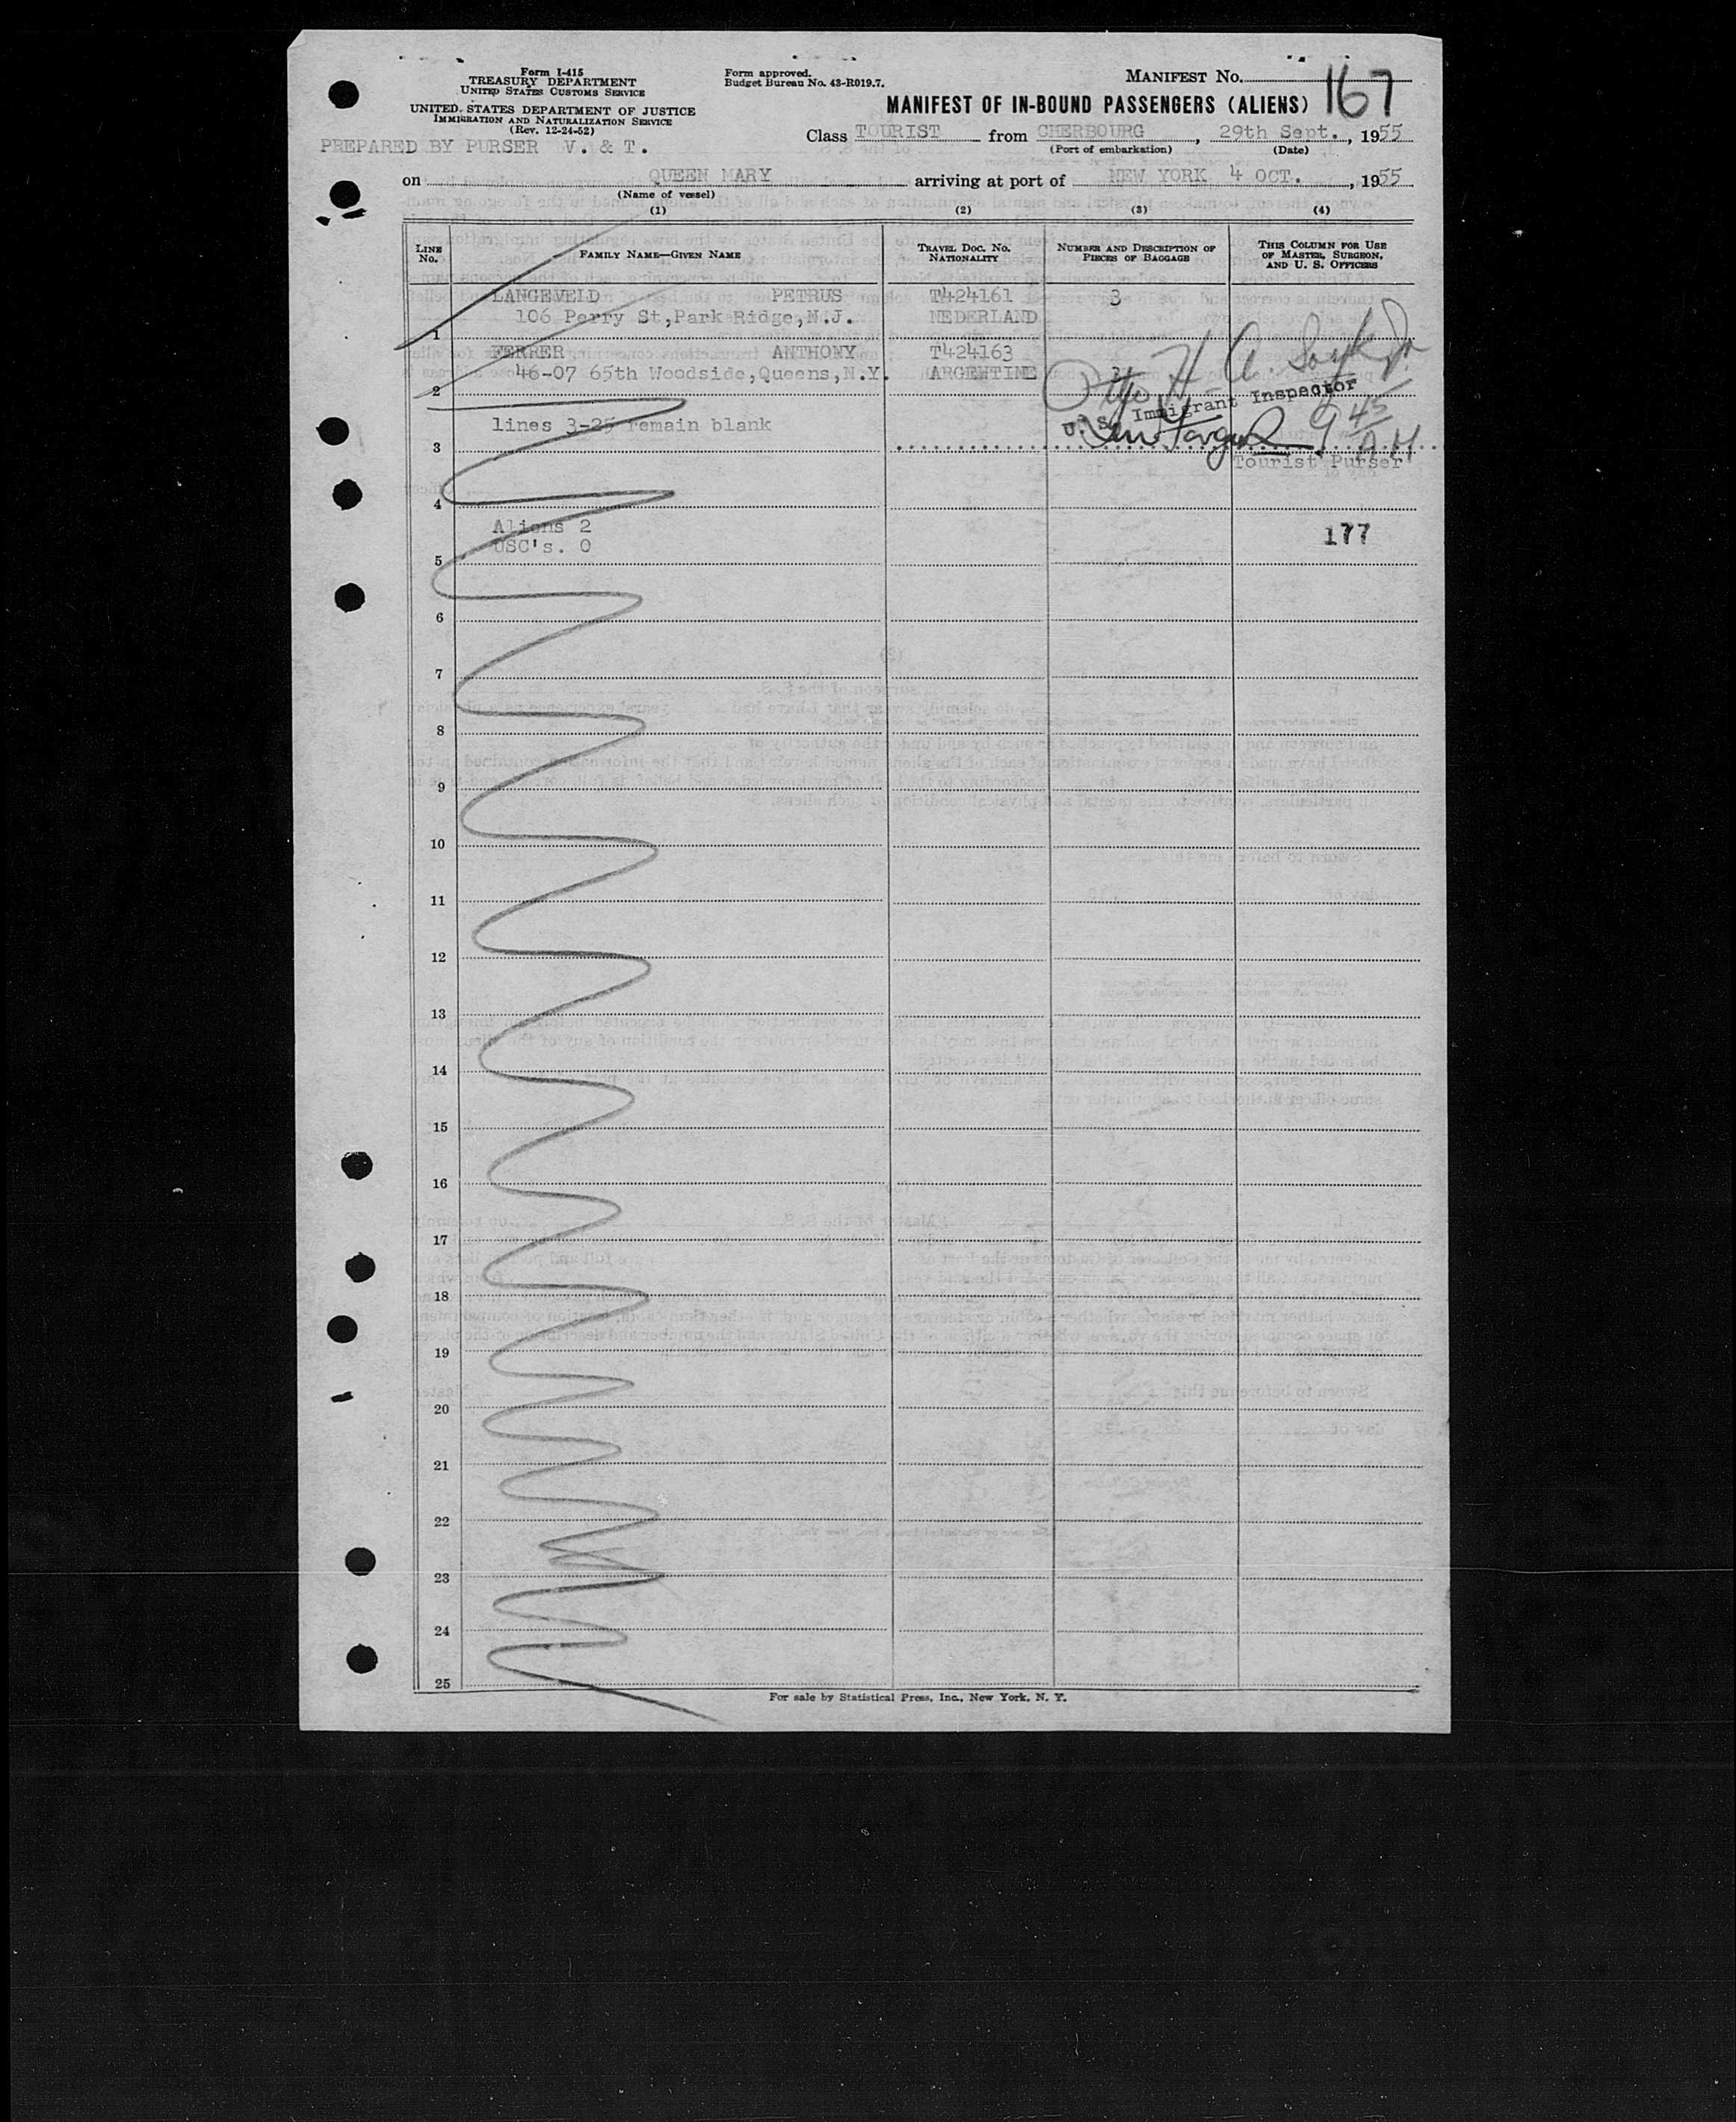 Form I-415
TREASURY DEPARTMENT
UNITED STATES CUSTOMS SERVICE
UNITED STATES DEPARTMENT OF JUSTICE
IMMIGRATION AND NATURALIZATION SERVICE
(Rev. 12-24-52)
PREPARED BY PURSER V. & T.
Form approved.
Budget Bureau No. 43-R019.7.
MANIFEST No. 167
MANIFEST OF IN-BOUND PASSENGERS (ALIENS)
Class TOURIST from CHERBOURG, 29th Sept., 1955
(Port of embarkation) (Date)
on QUEEN MARY arriving at port of NEW YORK 4 OCT., 1955
(Name of vessel)
(1) (2) (3) (4)
LINE No. FAMILY NAME—GIVEN NAME TRAVEL DOC. NO. NATIONALITY NUMBER AND DESCRIPTION OF PIECES OF BAGGAGE THIS COLUMN FOR USE OF MASTER, SURGEON, AND U. S. OFFICERS
LANGEVELD PETRUS T424161 3
106 Perry St,Park Ridge,N.J. NEDERLAND
1
FERRER ANTHONY T424163
46-07 65th Woodside,Queens,N.Y. ARGENTINE 3
2
U. S. Immigrant Inspector
lines 3-25 remain blank
9 45 AM
3
Tourist Purser
4
Aliens 2
177
USC's. 0
5
6
7
8
9
10
11
12
13
14
15
16
17
18
19
20
21
22
23
24
25
For sale by Statistical Press, Inc., New York, N. Y.